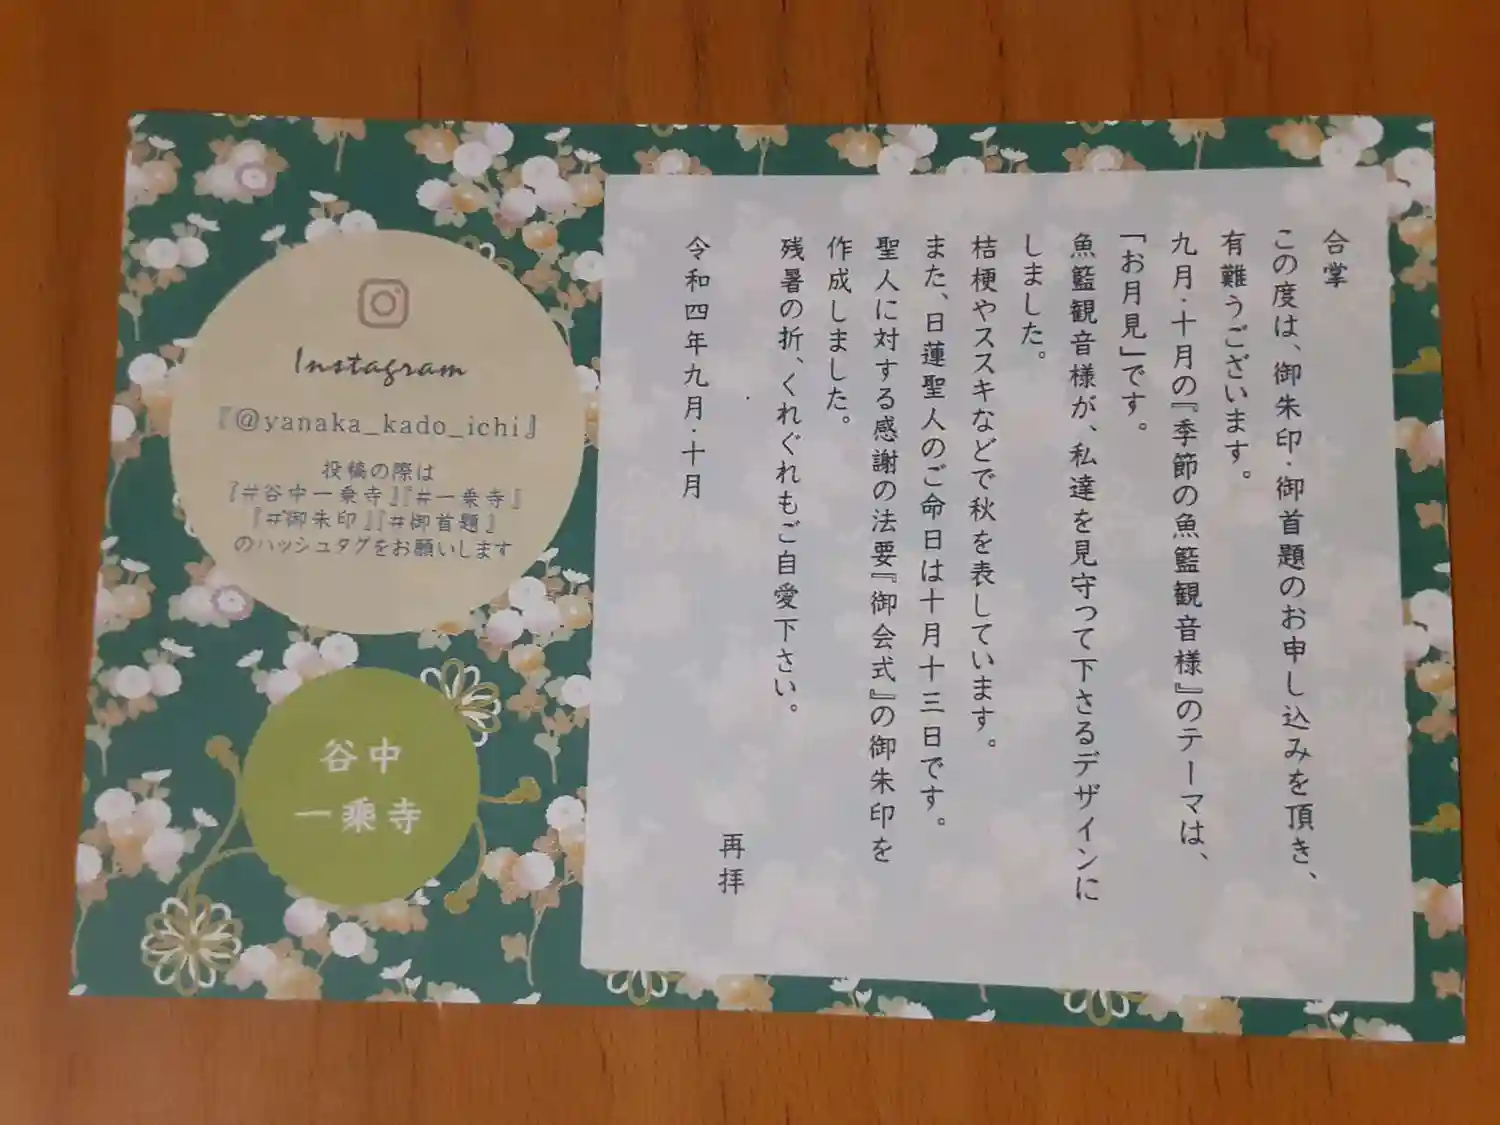 合掌
この度は、御朱印・御首題のお申し込みを頂き、
有難うございます。
九月・十月の『季節の魚籃観音様』のテーマは、
「お月見」です。
魚籃観音様が、私達を見守つて下さるデザインに
しました。
桔梗やススキなどで秋を表しています。
また、日蓮聖人のご命日は十月十三日です。
聖人に対する感謝の法要『御会式』の御朱印を
作成しました。
残暑の折、くれぐれもご自愛下さい。
再拝
令和四年九月・十月
Instagram
『@yanaka_kado_ichi』
投稿の際は
『#谷中一乗寺』『#一乗寺』
『#御朱印』『#御首題』
のハッシュタグをお願いします
谷中
一乗寺